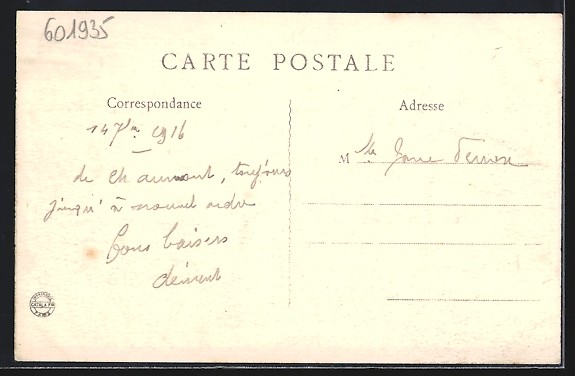 601935
CARTE POSTALE
Correspondance
Adresse
14 7bre 1916
de Chaumont, toujours
jusqu'à nouvel ordre
Bons baisers
Clément
M lle Jane